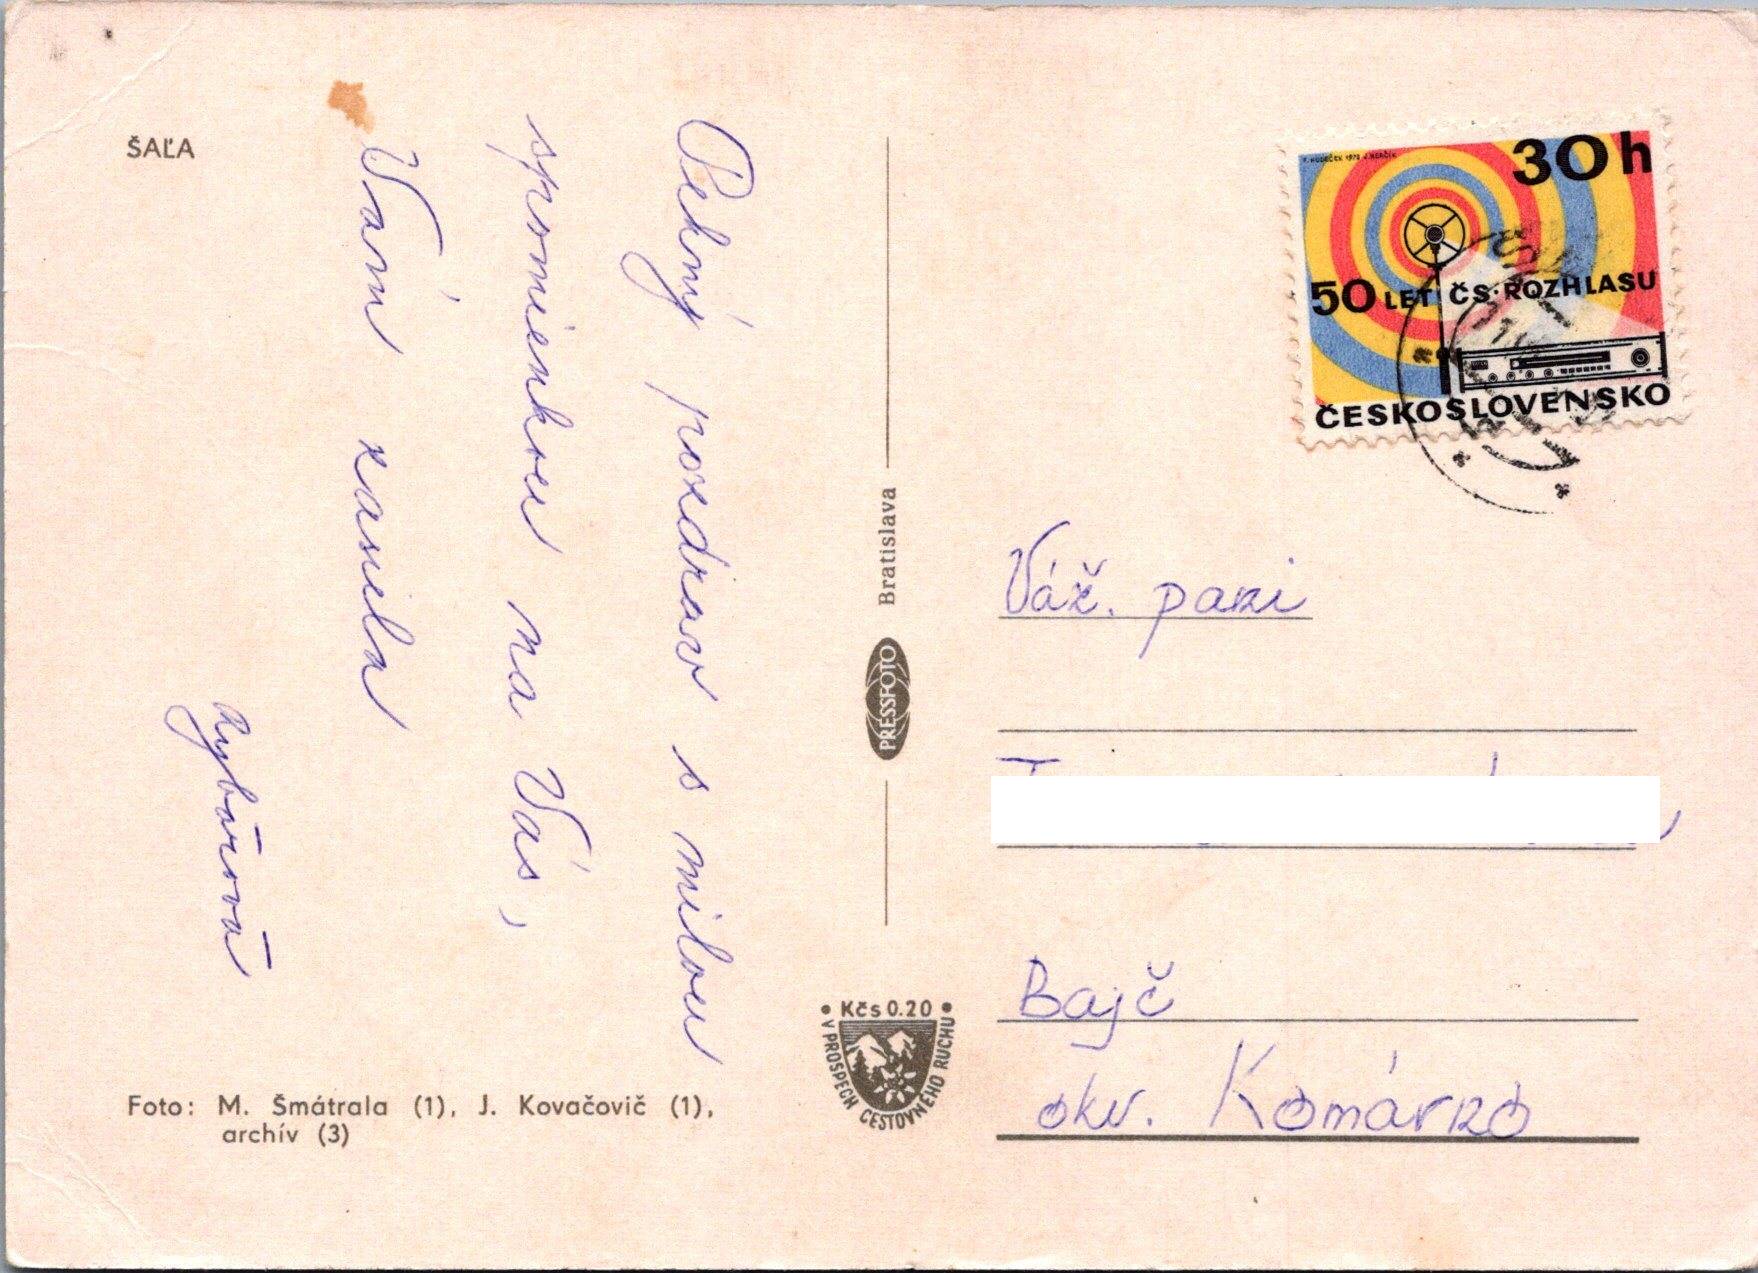 ŠAĽA
Pekný pozdrav s milou
spomienkou na Vás,
Vám zasiela
Rybárová
Foto: M. Šmátrala (1), J. Kovačovič (1),
archív (3)
Bratislava
PRESSFOTO
• Kčs 0.20 •
V PROSPECH CESTOVNÉHO RUCHU
30 h
50 LET ČS. ROZHLASU
ČESKOSLOVENSKO
Váž. pani
Bajč
okr. Komárno